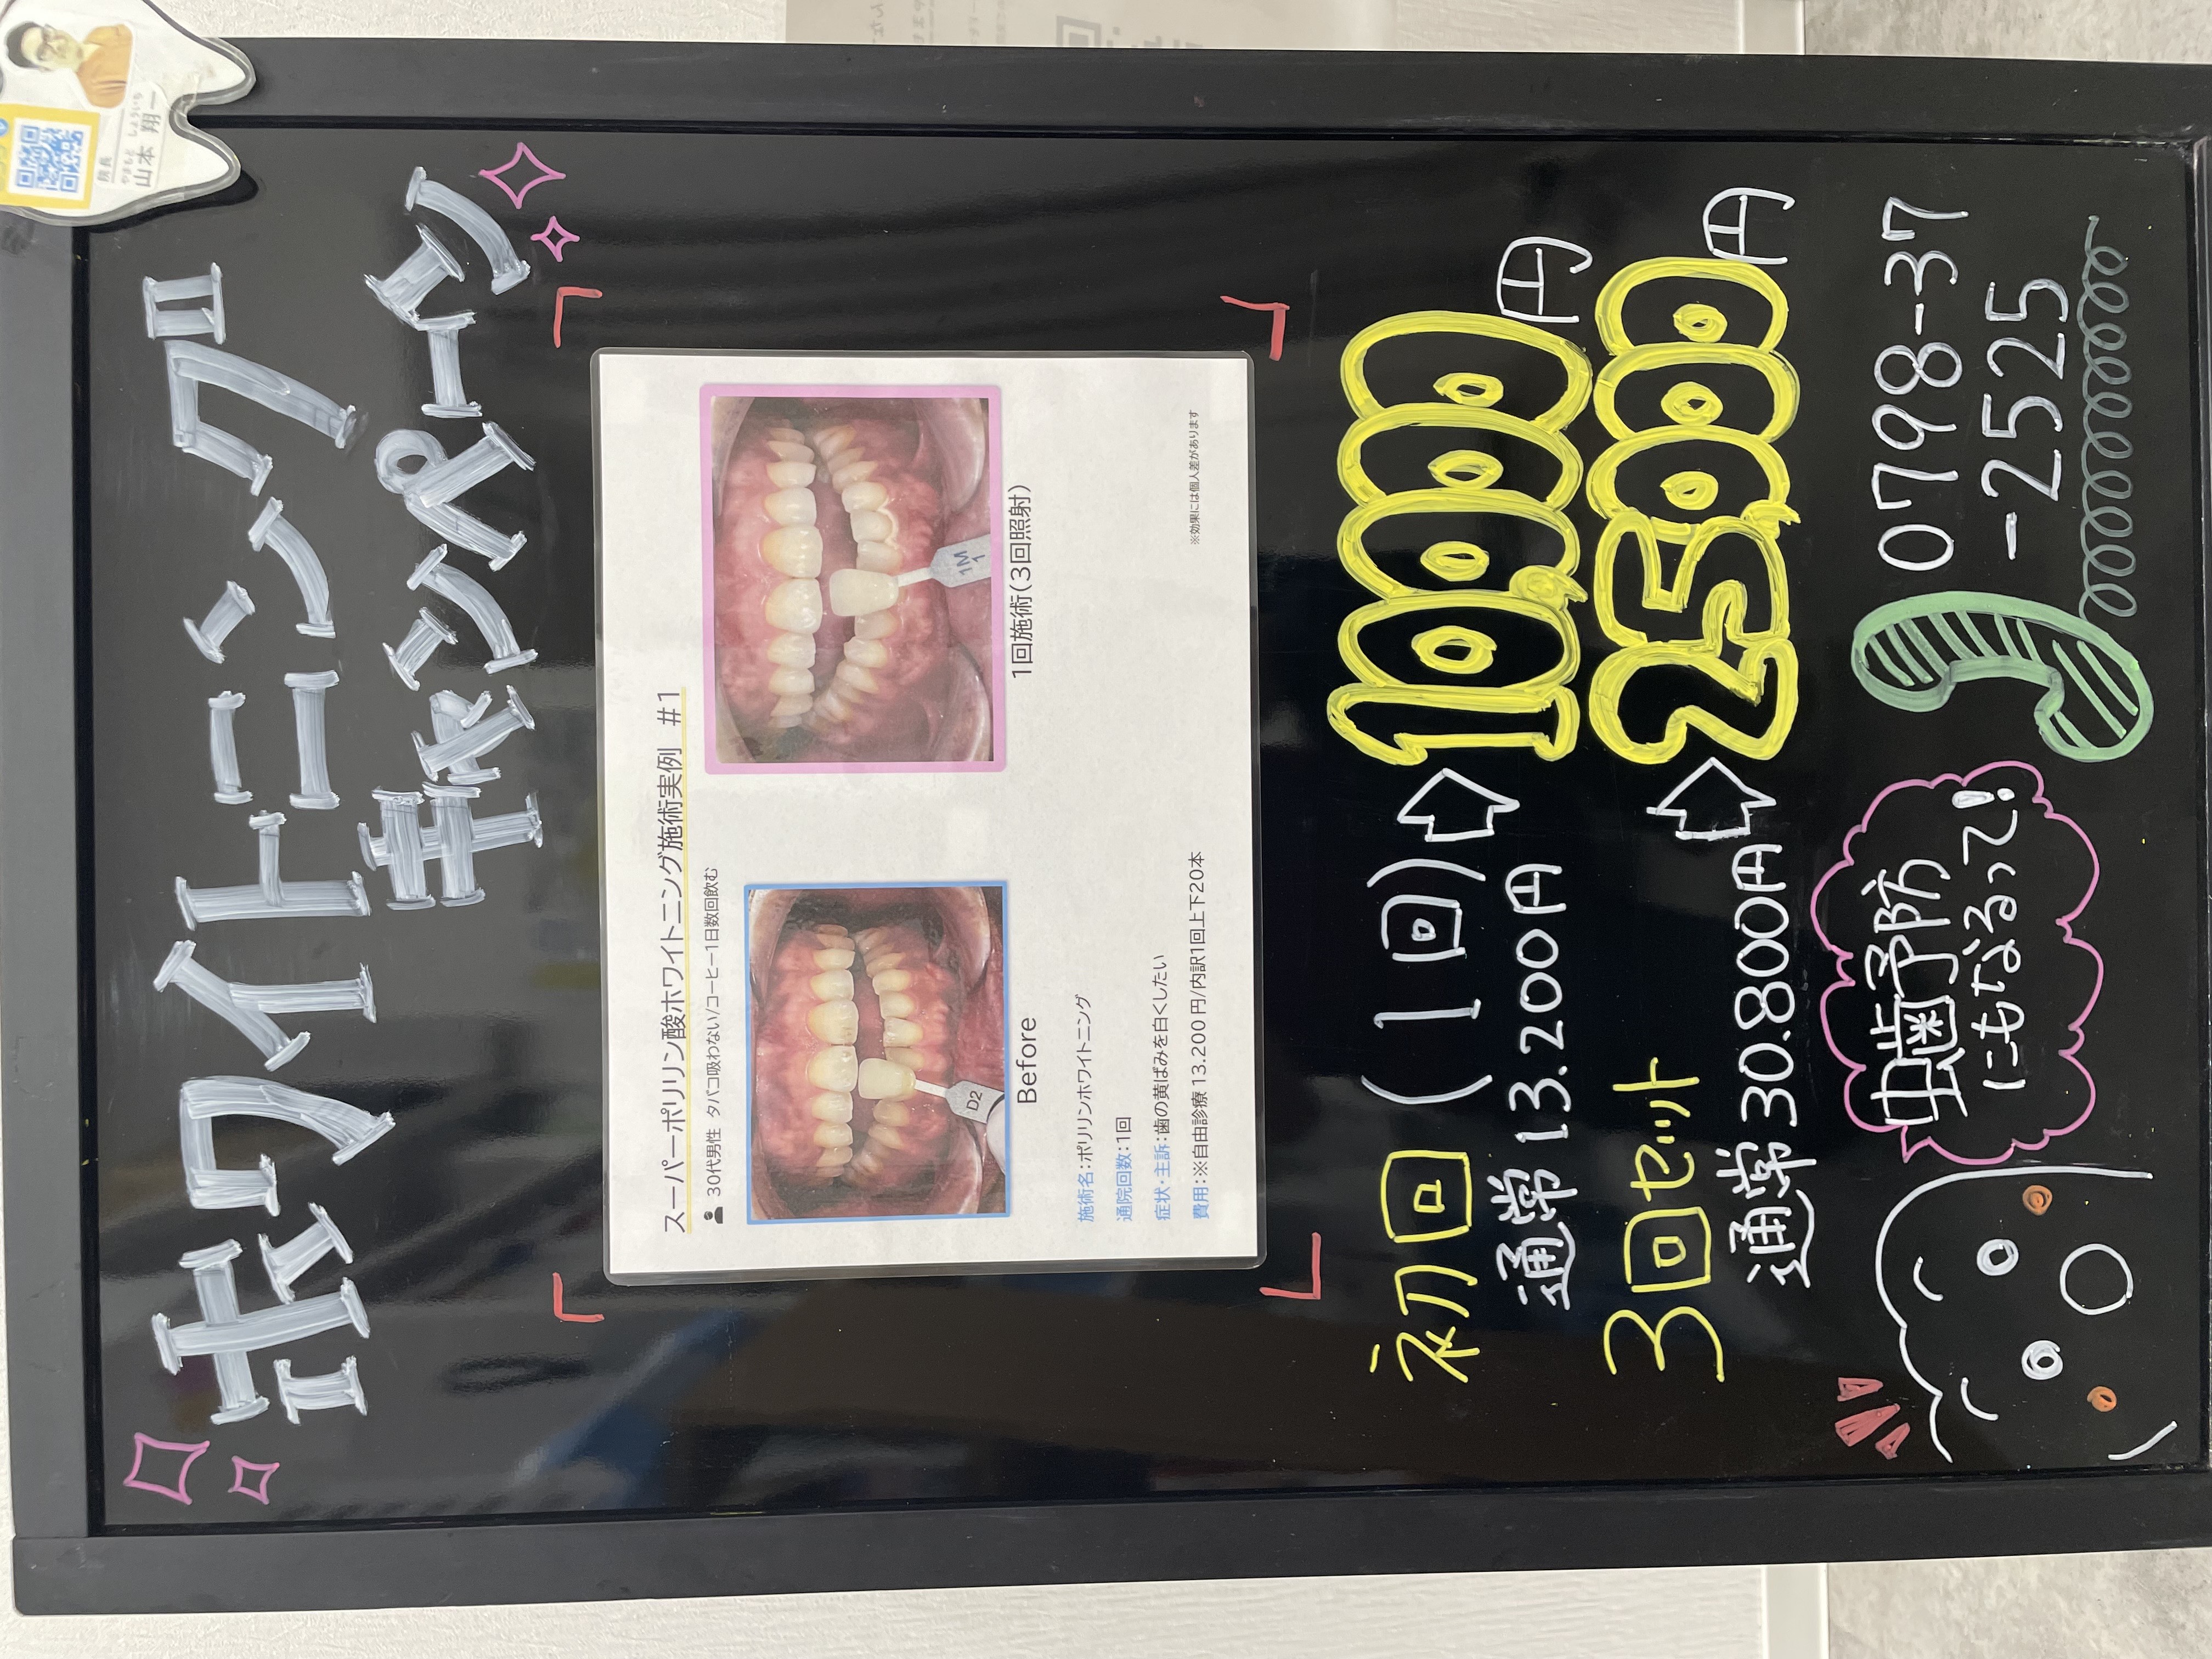 院長
やまもと しょういち
山本 翔一
ホワイトニング
キャンペーン
スーパーポリリン酸ホワイトニング施術実例 #1
30代男性 タバコ吸わない/コーヒー1日数回飲む
D2
1M
1
Before
1回施術(3回照射)
施術名:ポリリンホワイトニング
通院回数:1回
症状・主訴:歯の黄ばみを白くしたい
費用:※自由診療 13.200円/内訳1回上下20本
※効果には個人差があります
初回(1回)
通常13.200円
10,000円
3回セット
通常30.800円
25,000円
虫歯予防
にもなるって!
0798-37
-2525